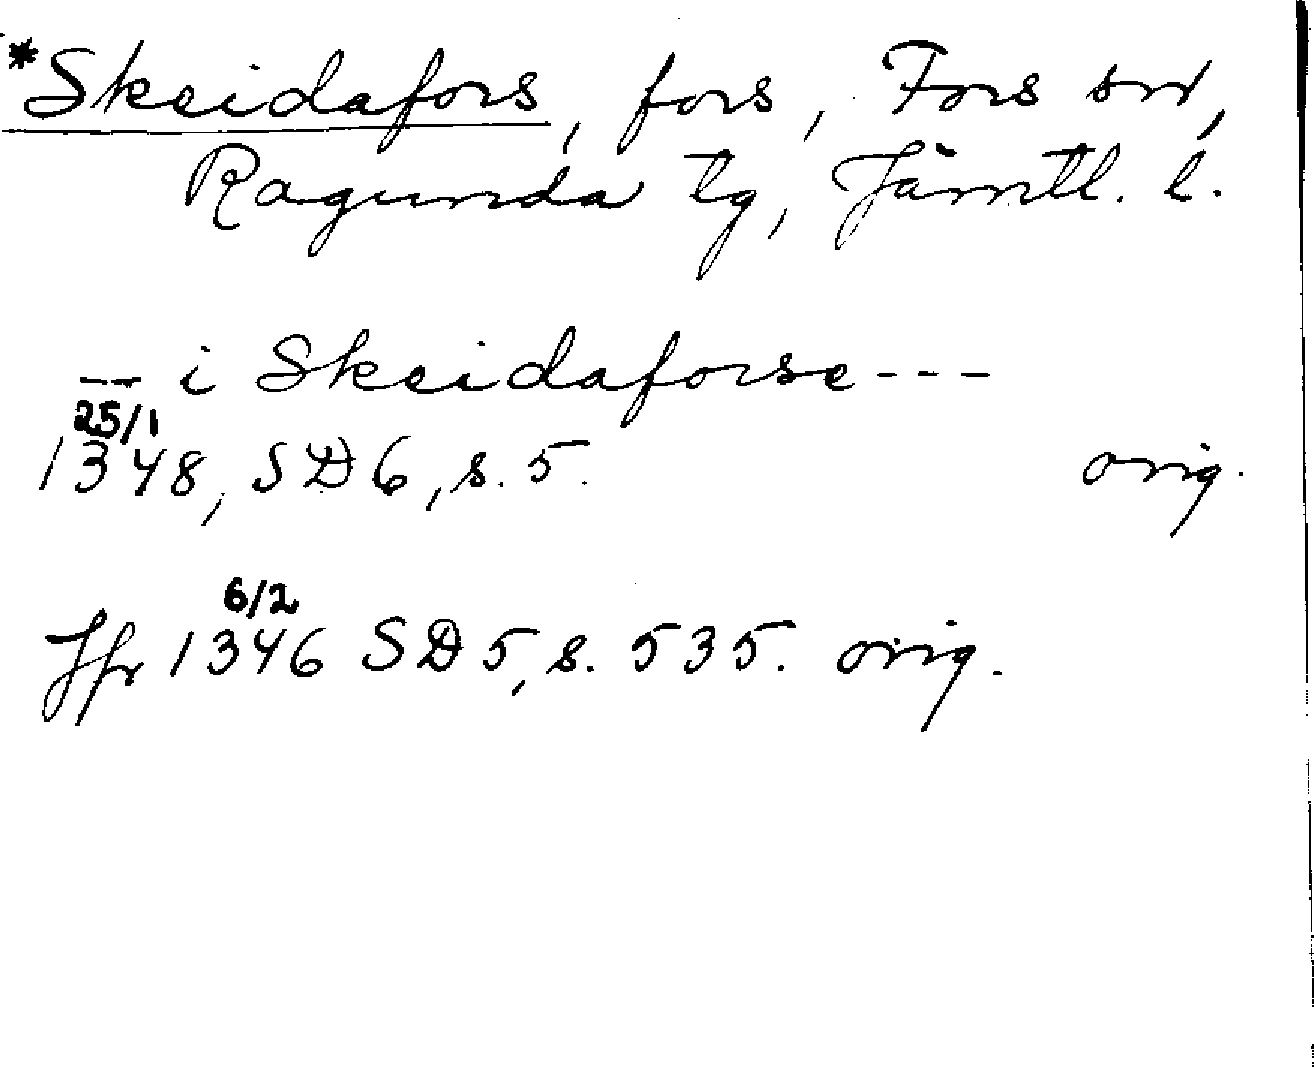 *Skeidafors, fors, Fors sn,
Ragunda tg, Jämtl. l.
-- i Skeidaforse---
25/1
1348, SD 6, s. 5.
orig.
6/2
Jfr 1346 SD 5, s. 535. orig.